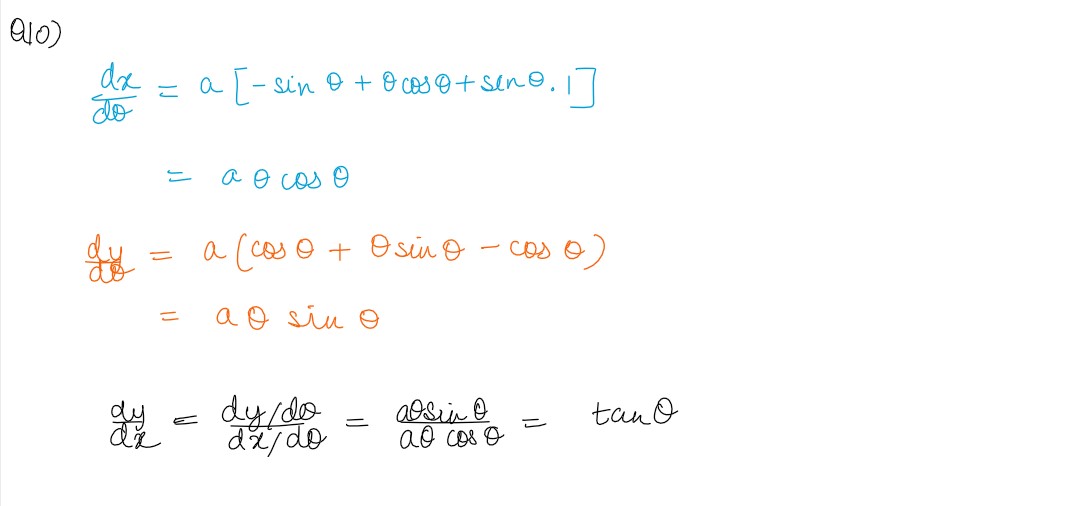 Q10)
dx/dθ = a [- sin θ + θ cos θ + sin θ . 1]
= a θ cos θ
dy/dθ = a (cos θ + θ sin θ - cos θ)
= a θ sin θ
dy/dx = (dy/dθ)/(dx/dθ) = (aθ sin θ)/(aθ cos θ) = tan θ